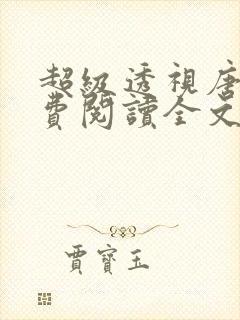 超級透視唐
費閱讀全文
賈寶玉